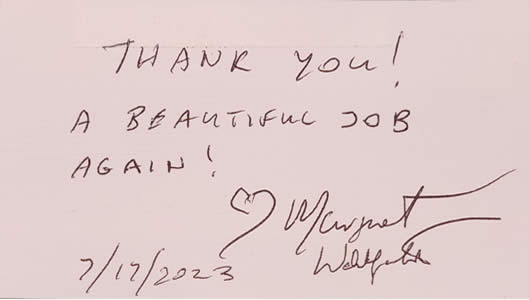 THANK YOU!
A BEAUTIFUL JOB
AGAIN!
♡ Margaret
7/17/2023